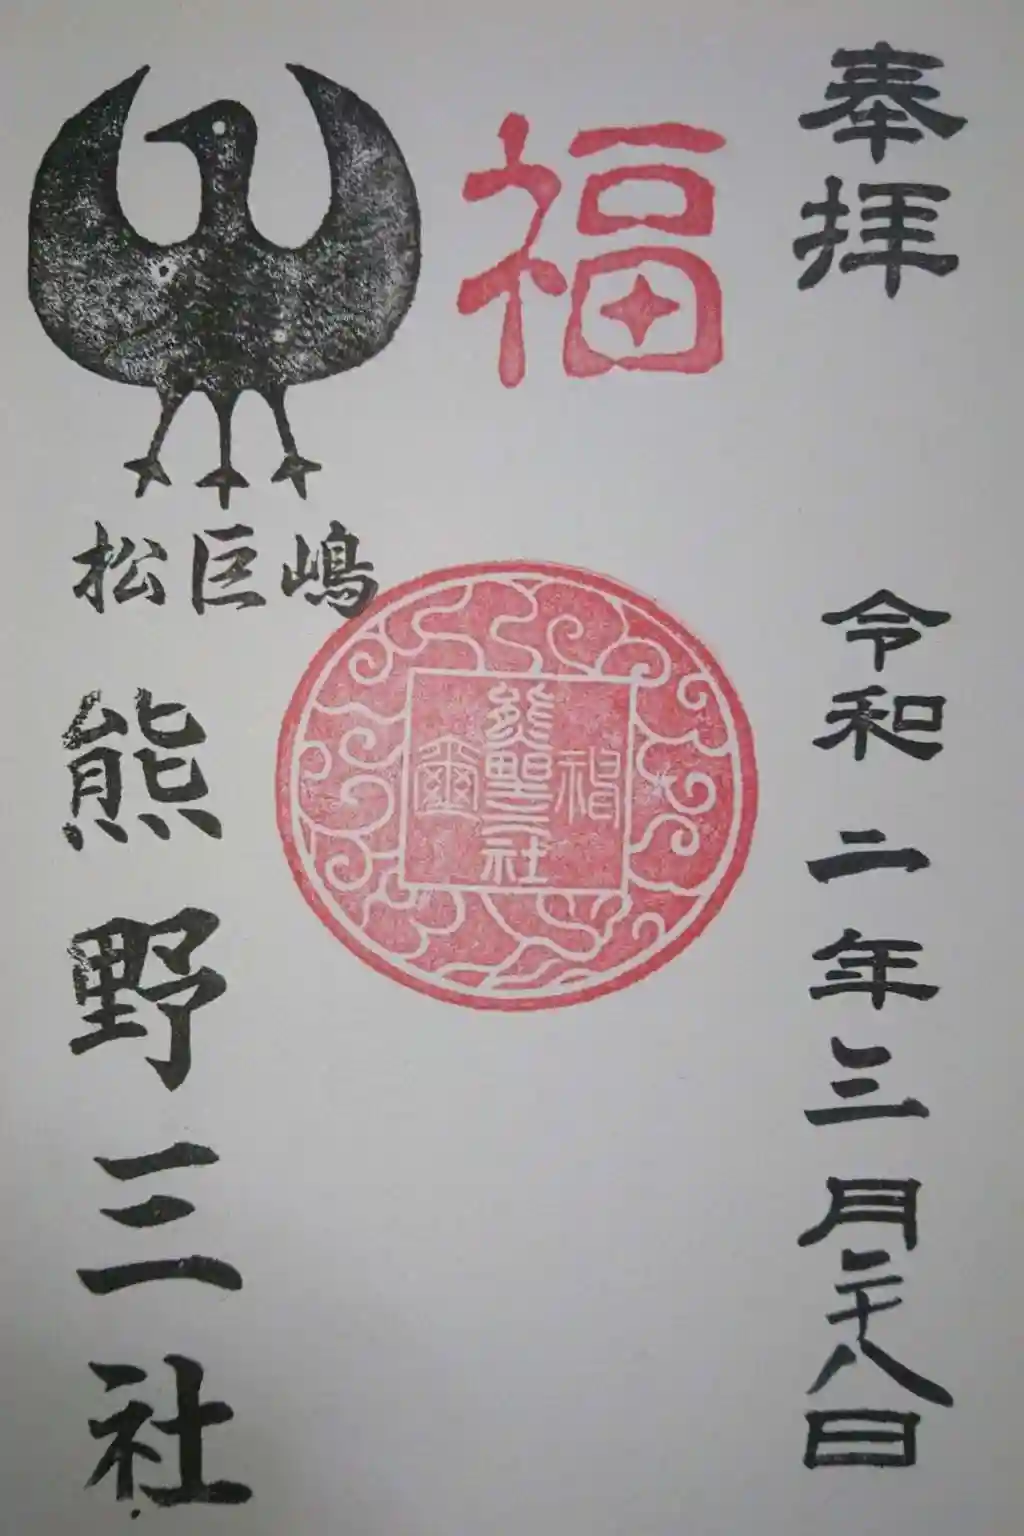 奉拝
令和二年三月二十八日
福
熊野三社
神璽
松巨嶋
熊野三社